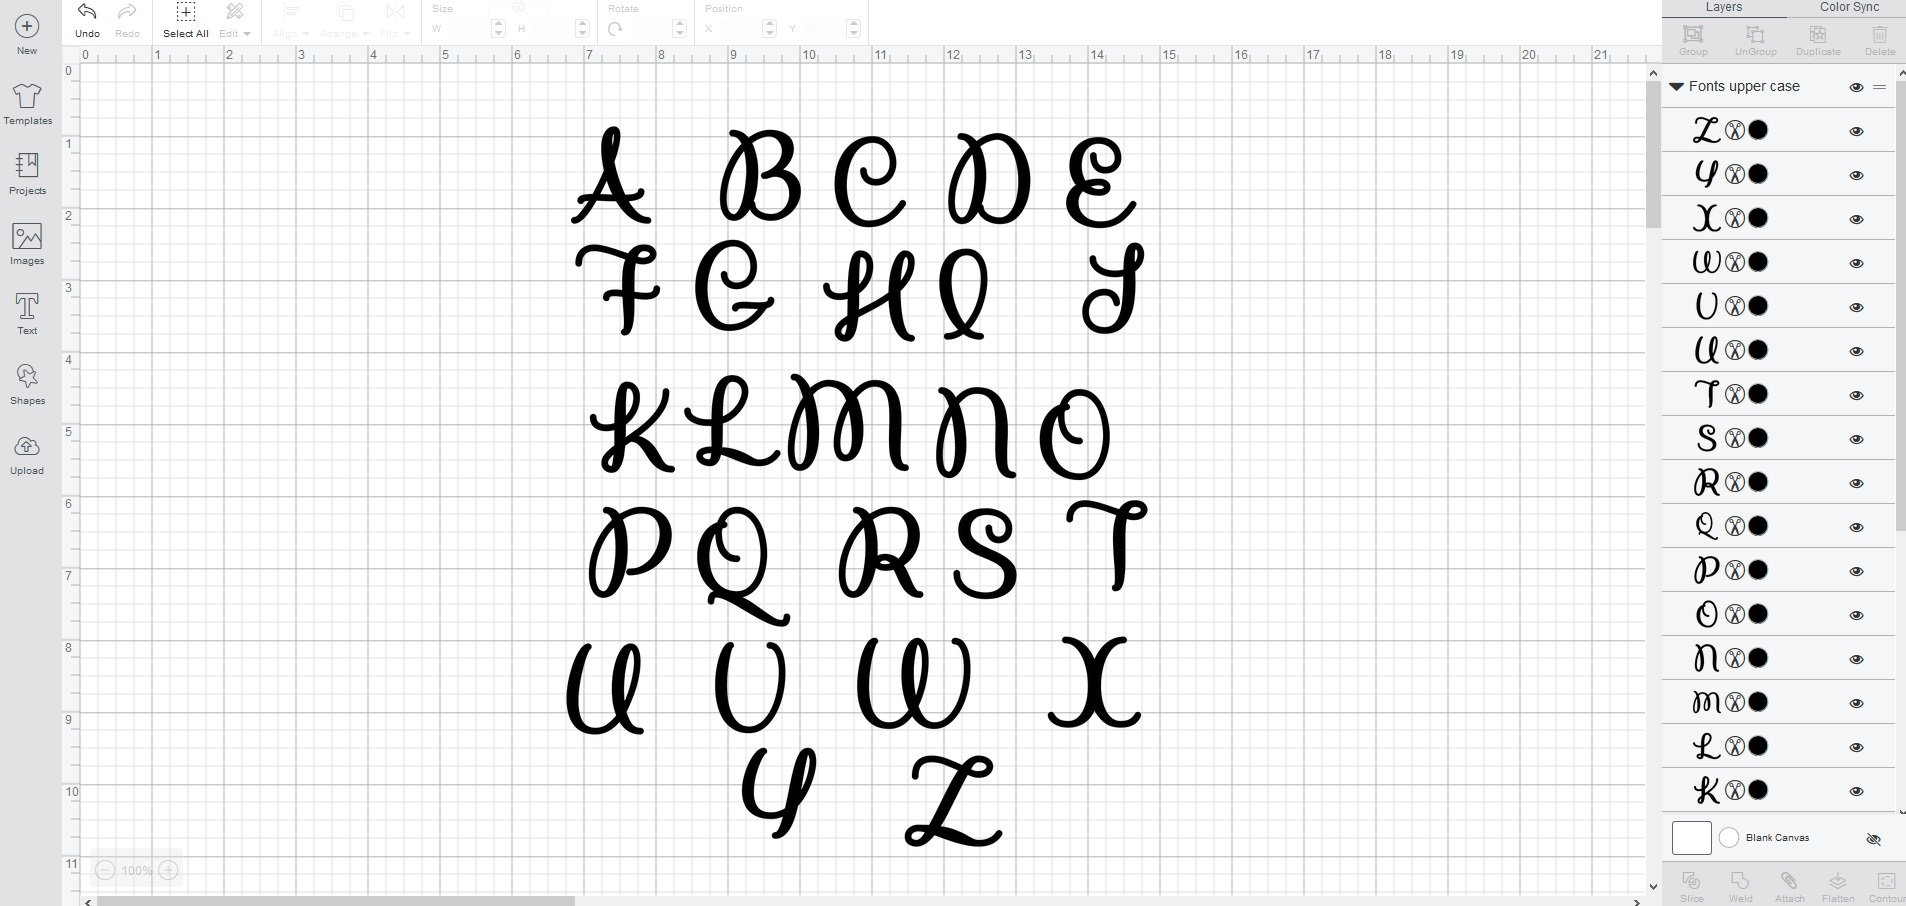 Undo Redo Select All Edit Align Arrange Flip Size W H Rotate Position X Y
Layers Color Sync
Group UnGroup Duplicate Delete
New
Templates
Projects
Images
Text
Shapes
Upload
0 1 2 3 4 5 6 7 8 9 10 11 12 13 14 15 16 17 18 19 20 21
0
1
2
3
4
5
6
7
8
9
10
11
A B C D E
F G H I J
K L M N O
P Q R S T
U V W X
Y Z
100%
Fonts upper case
Z
Y
X
W
V
U
T
S
R
Q
P
O
N
M
L
K
Blank Canvas
Slice Weld Attach Flatten Contour